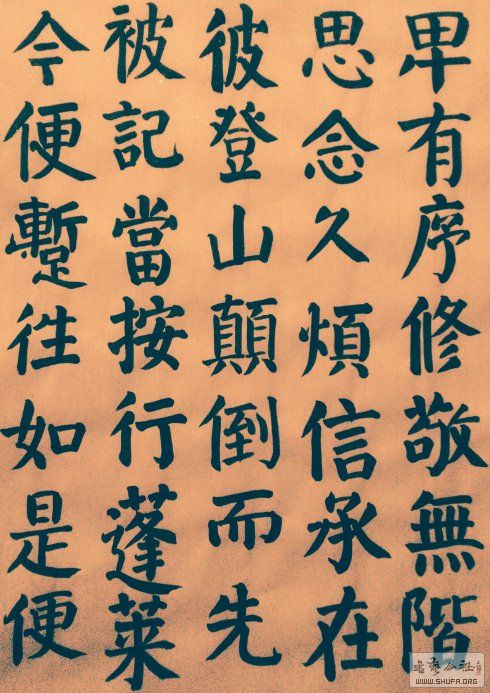 卑有序修敬無階
思念久煩信承在
彼登山顛倒而先
被記當按行蓬萊
今便蹔往如是便
WWW.SHUFA.ORG